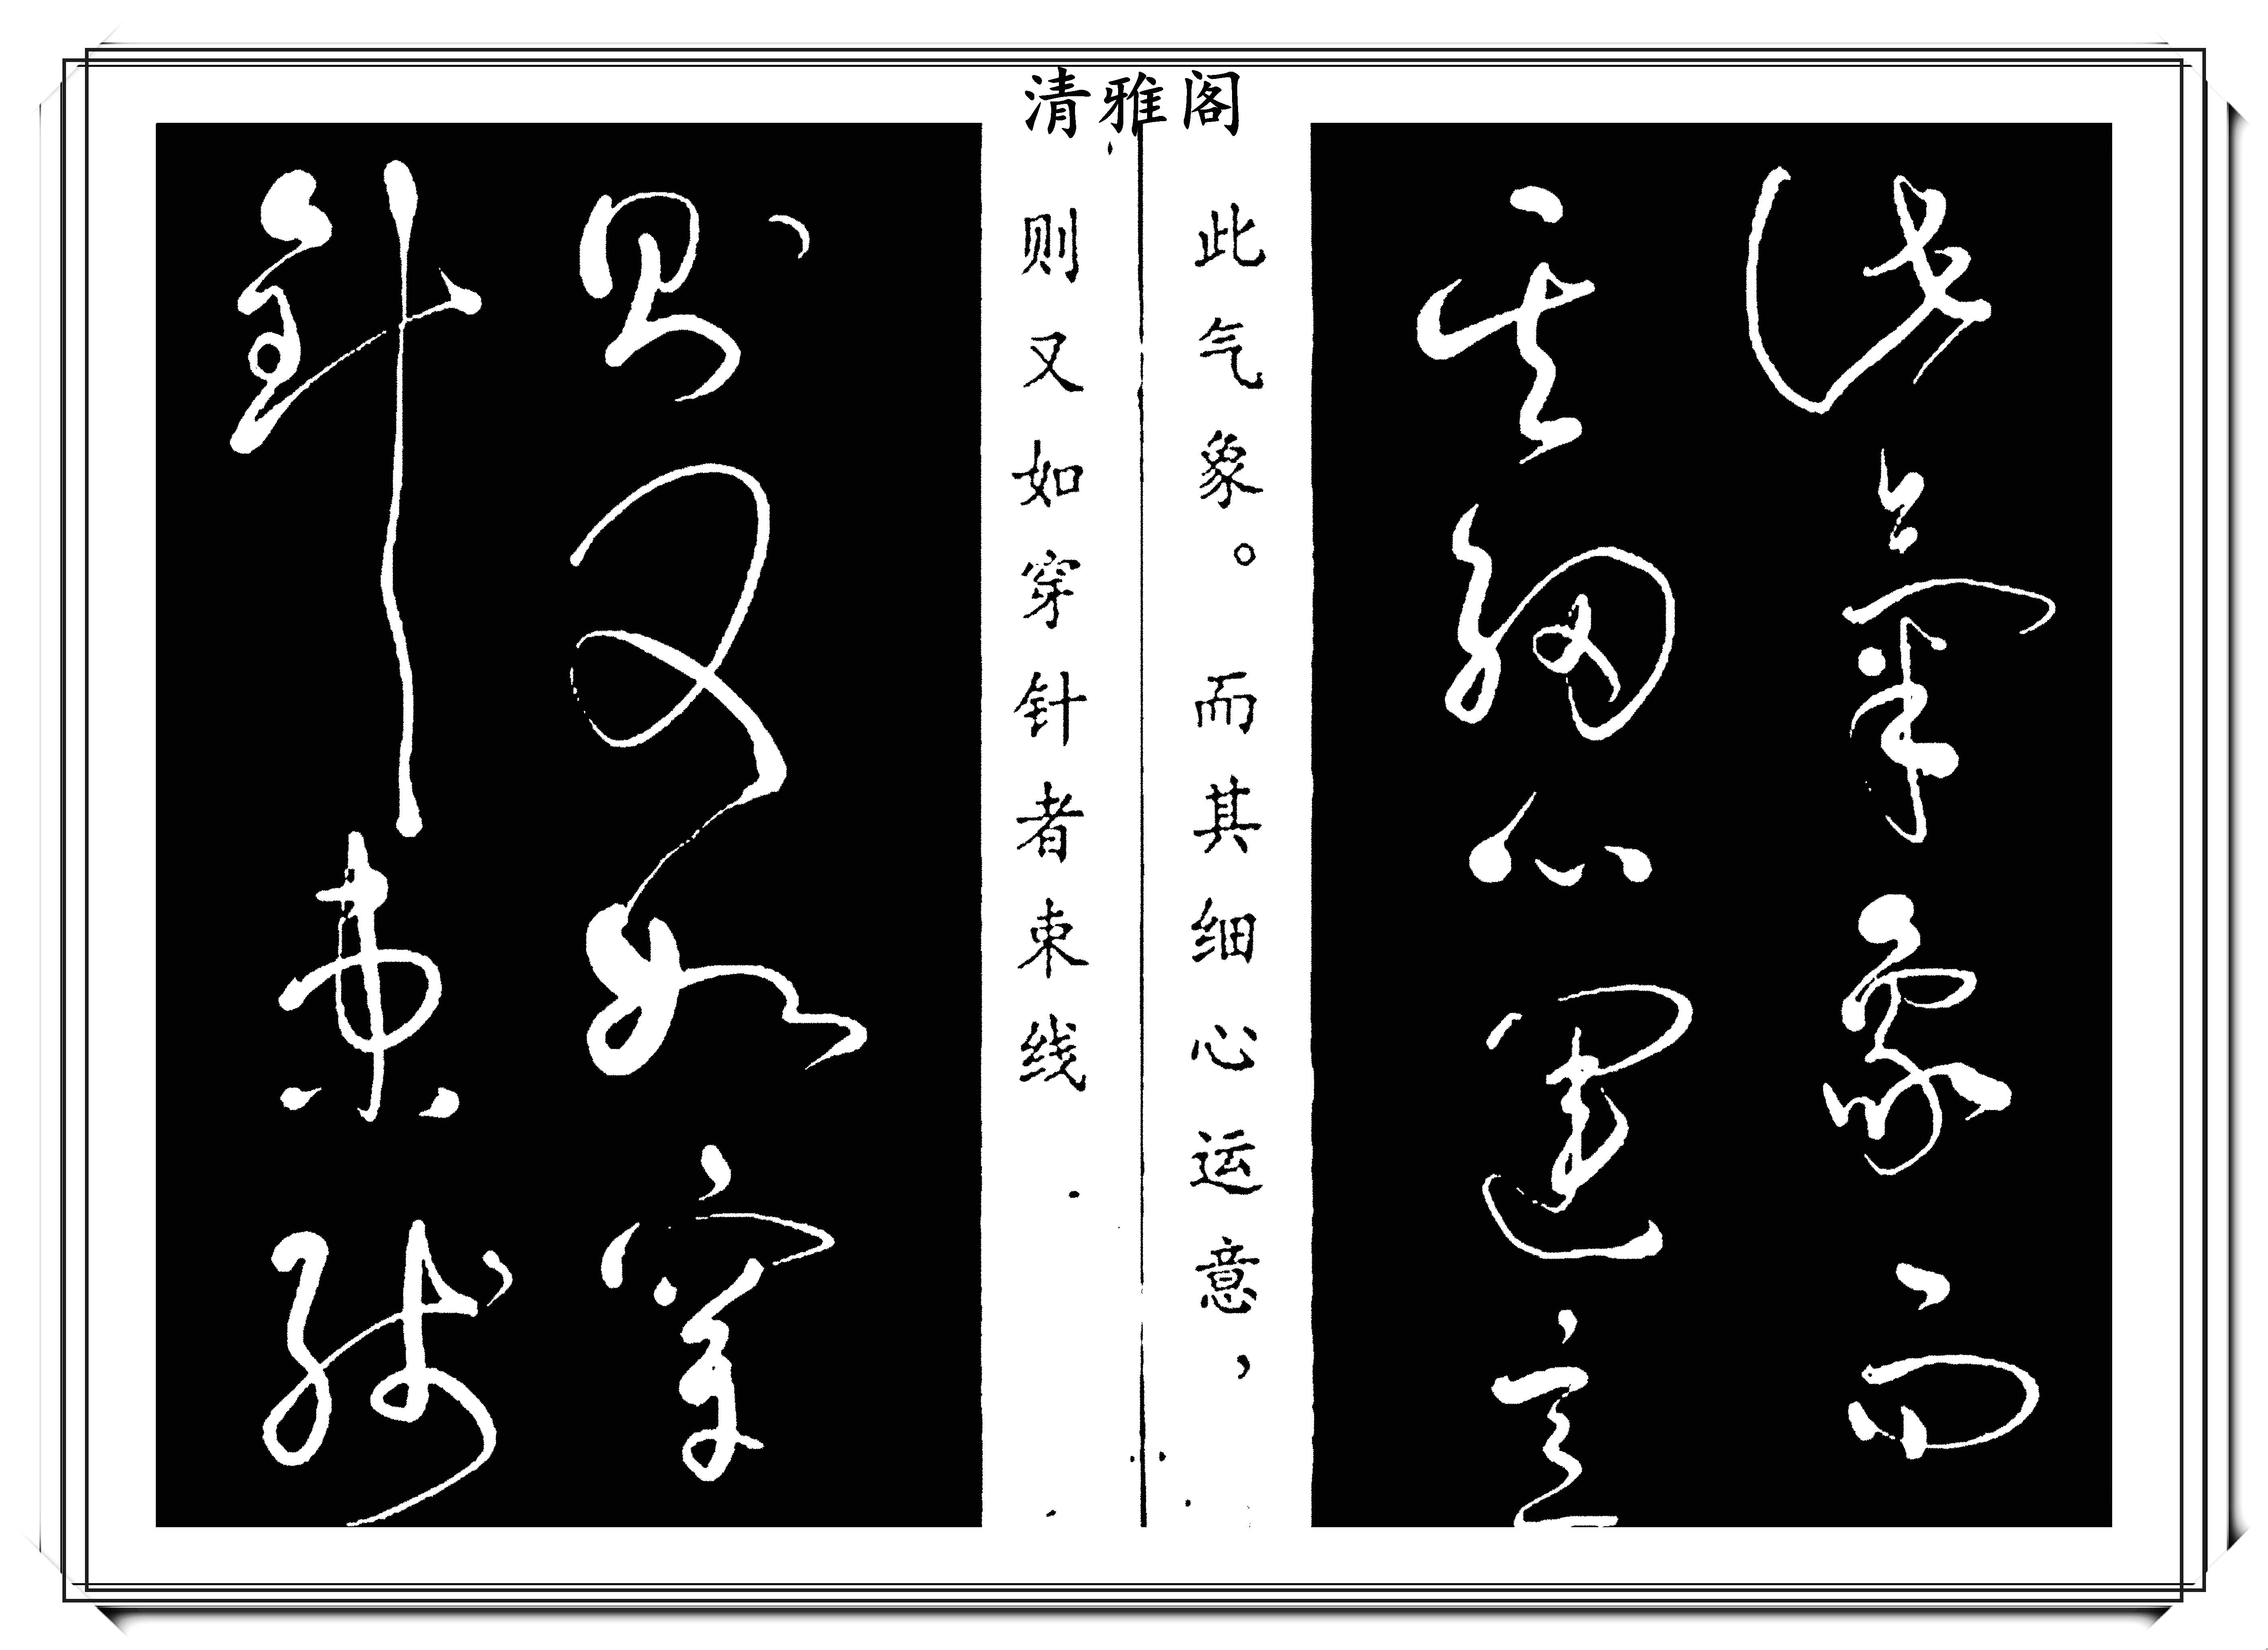 清雅阁
此气象。而其细心运意，
则又如穿针者束线
此气象而
其细心运意
则又如穿
针束线